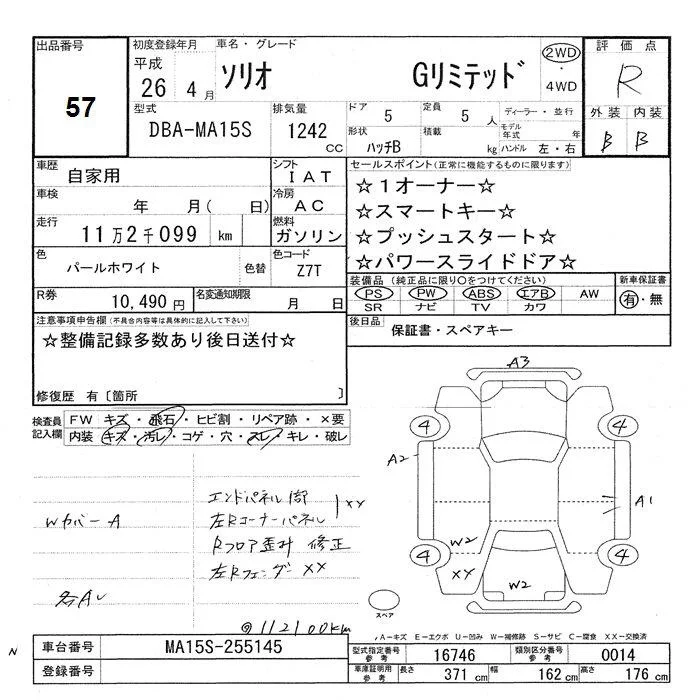 出品番号 初度登録年月 車名・グレード 2WD 評価点
57 平成 26 4月 ソリオ Gリミテッド ・ 4WD R
型式 DBA-MA15S 排気量 1242 CC ドア 5 定員 5 人 ディーラー・並行 外装 内装
形状 ハッチB 積載 kg モデル年式 年 ハンドル 左・右 B B
車歴 自家用 シフト IAT セールスポイント(正常に機能するものに限ります)
車検 年 月( 日) 冷房 AC ☆1オーナー☆
☆スマートキー☆
走行 11万2千099 km 燃料 ガソリン ☆プッシュスタート☆
☆パワースライドドア☆
色 パールホワイト 色替 色コード Z7T
装備品(純正品に限り○をつけてください) 新車保証書
R券 10,490円 名変通知期限 月 日 PS PW ABS エアB AW 有・無
SR ナビ TV カワ
注意事項申告欄(不具合内容等は具体的に記入して下さい) 後日品 保証書・スペアキー
☆整備記録多数あり後日送付☆
修復歴 有〔箇所 〕
検査員記入欄 FW キズ・飛石・ヒビ割・リペア跡・×要
内装 キズ・汚レ・コゲ・穴・スレ・キレ・破レ
A3
4 4
A2 A1
エンドパネル 部
左Rコーナーパネル XX
Wカバー A
Rフロア歪み 修正
左Rフェンダー XX
W2
4 4
XX W2
各A
@112100km
スペア
A-キズ E-エクボ U-凹み W-補修跡 S-サビ C-腐食 XX-交換済
N 車台番号 MA15S-255145 型式指定番号 参考 16746 類別区分番号 参考 0014
登録番号 車庫証明用 参考 長さ 371 cm 幅 162 cm 高さ 176 cm